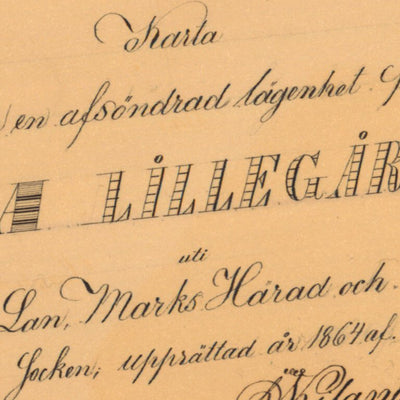 Karta
en afsöndrad lägenhet
A LILLEGÅR
uti
Län, Marks Härad och
Socken; upprättad år 1864 af.